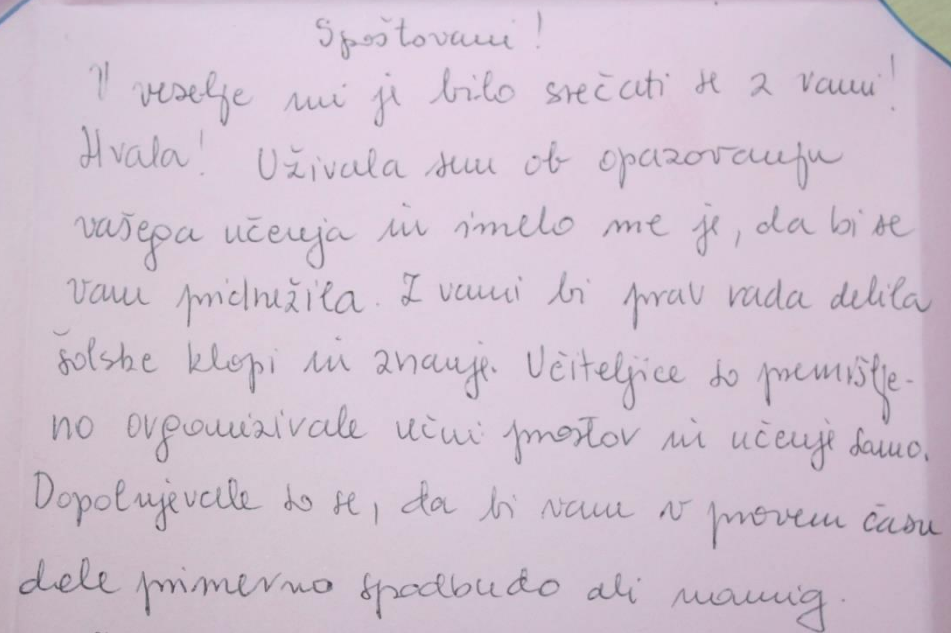 Spoštovani!
V veselje mi je bilo srečati se z vami!
Hvala! Uživala sem ob opazovanju
vašega učenja in imelo me je, da bi se
vam pridružila. Z vami bi prav rada delila
šolske klopi in znanje. Učiteljice so premišlje-
no organizirale učni prostor in učenje samo.
Dopolnjevale so se, da bi vam v pravem času
dale primerno spodbudo ali namig.